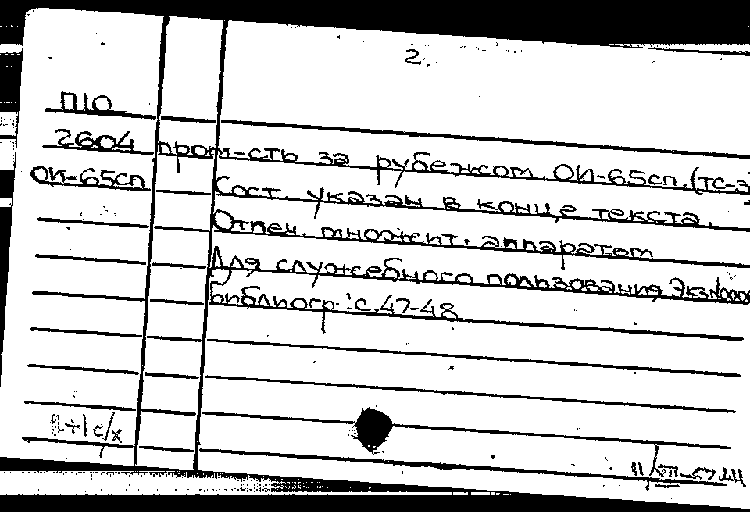 2.
П10
2604 пром-сть за рубежом. ОИ-65сп.(ТС-3)
ОИ-65сп Сост. указан в конце текста.
Отпеч. множит. аппаратом
Для служебного пользования Экз№000
Библиогр.: с.47-48
1 с/х